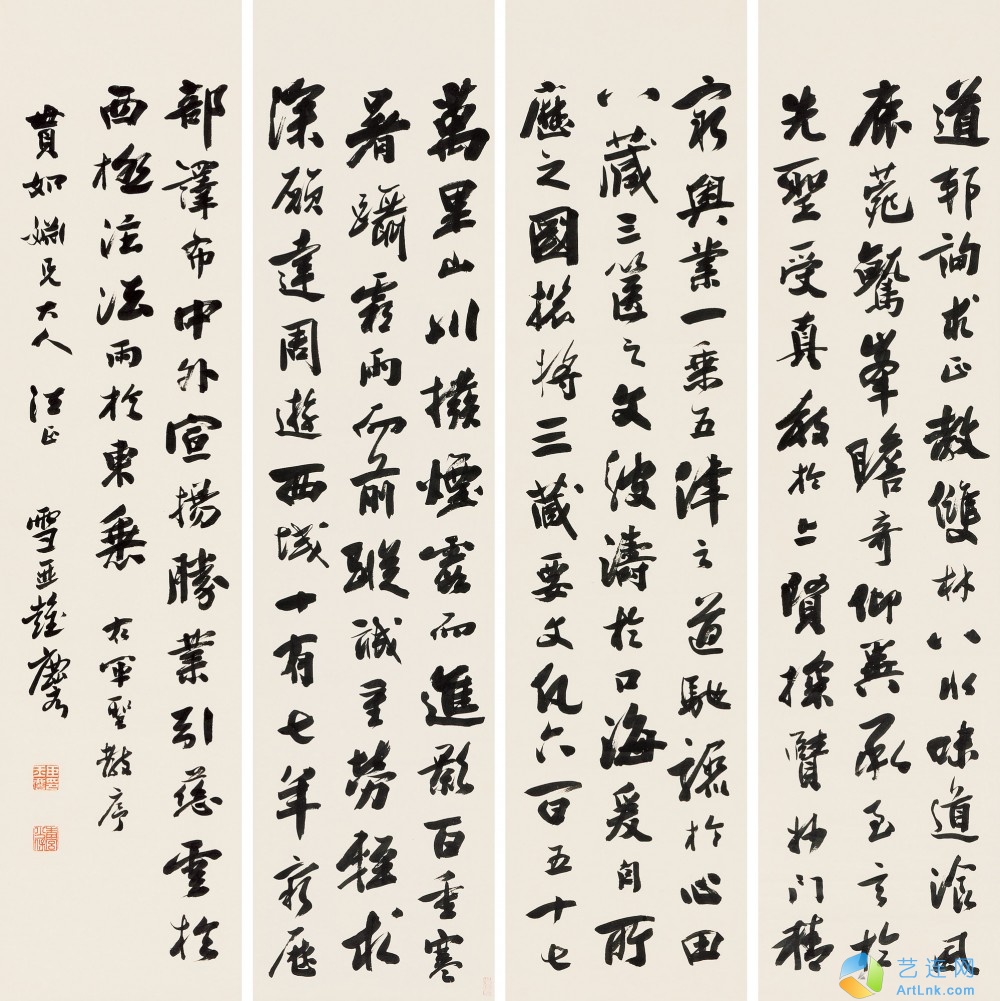 道邦詢求正教雙林八水味道湌風
鹿菀鷲峯瞻奇仰異承至言於
先聖受真教於上賢探賾妙門精
窮奧業一乘五津之道馳驟於心田
八藏三篋之文波濤於口海爰自所
歷之國揔將三藏要文凡六百五十七
萬里山川撥煙霞而進影百重寒
暑躡霜雨而前蹤誠重勞輕求
深願達周遊西域十有七年窮歷
部譯布中外宣揚勝業引慈雲於
西極注法雨於東垂 右軍聖教序
貫如姻兄大人法正 雪亞
艺连网
ArtLnk.com